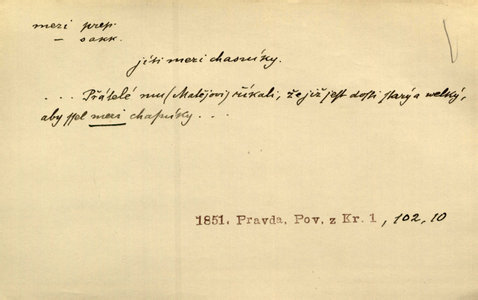 mezi prep.
– s akk.
jíti mezi chasníky.
. . . Přátelé mu (Matějovi) říkali, že již jest dosti starý a welký,
aby ssel mezi chasníky . . .
1851. Pravda, Pov. z Kr. 1, 102, 10